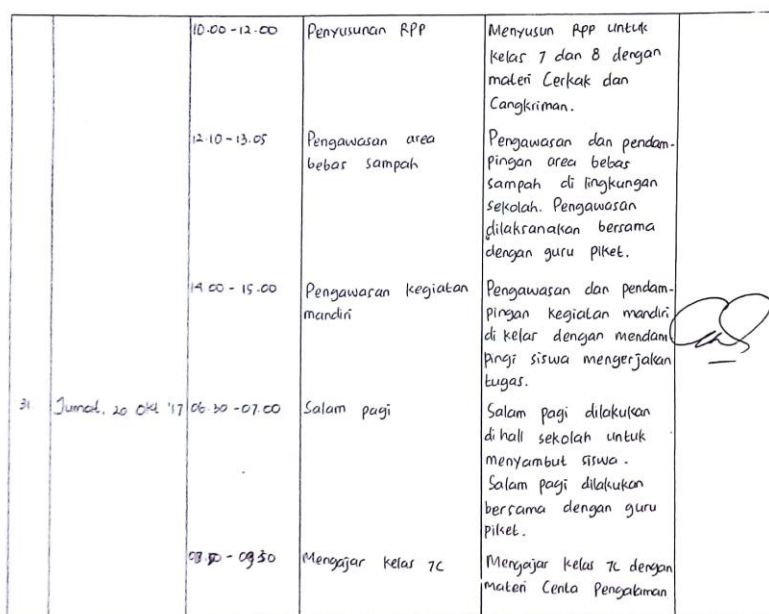 10.00 - 12.00 Penyusunan RPP Menyusun RPP untuk
kelas 7 dan 8 dengan
materi Cerkak dan
Cangkriman.
12.10 - 13.05 Pengawasan area Pengawasan dan pendam-
bebas sampah pingan area bebas
sampah di lingkungan
sekolah. Pengawasan
dilaksanakan bersama
dengan guru piket.
14.00 - 15.00 Pengawasan kegiatan Pengawasan dan pendam-
mandiri pingan kegiatan mandiri
di kelas dengan mendam
pingi siswa mengerjakan
tugas.
31 Jumat, 20 Okt '17 06.30 - 07.00 Salam pagi Salam pagi dilakukan
di hall sekolah untuk
menyambut siswa.
Salam pagi dilakukan
bersama dengan guru
piket.
- 09.30 Mengajar kelas 7C Mengajar kelas 7C dengan
materi Cerita Pengalaman